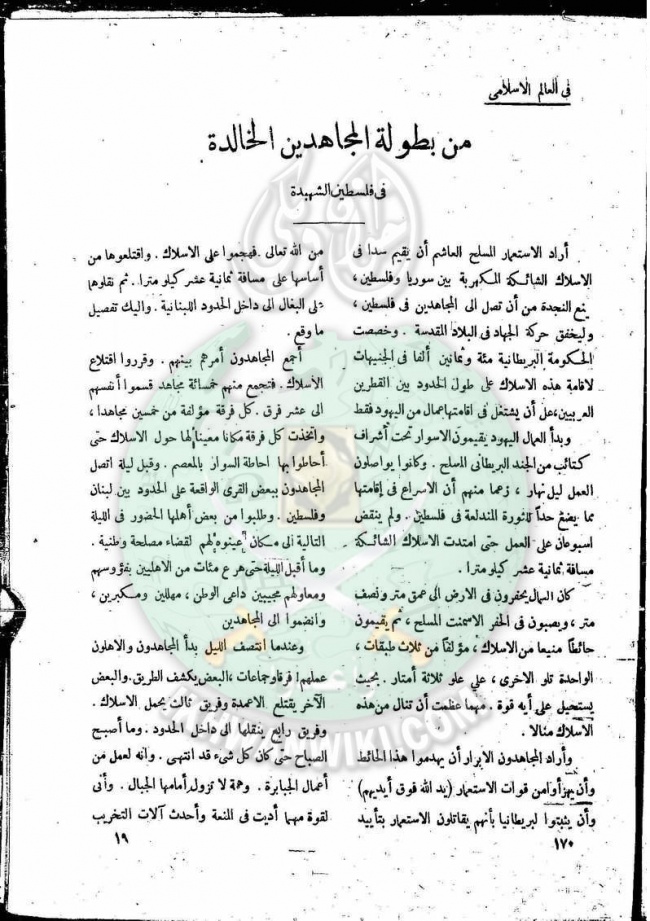 فى العالم الاسلامى
من بطولة المجاهدين الخالدة
فى فلسطين الشهيدة
أراد الاستعمار المسلح الغاشم أن يقيم سدا فى
الاسلاك الشائكة المكهربة بين سوريا وفلسطين ،
يمنع النجدة من أن تصل الى المجاهدين فى فلسطين ،
وليخفق حركة الجهاد فى البلاد المقدسة . وخصصت
الحكومة البريطانية مئة وثمانين ألفا فى الجنيهات
لاقامة هذه الاسلاك على طول الحدود بين القطرين
العربيين ، على أن يشتغل فى اقامتها عمال من اليهود فقط
وبدأ العمال اليهود يقيمون الاسوار تحت أشراف
كتائب من الجند البريطانى المسلح . وكانوا يواصلون
العمل ليل نهار ، زعما منهم أن الاسراع فى إقامتها
مما يضع حداً للثورة المندلعة فى فلسطين . ولم ينقض
اسبوعان على العمل حتى امتدت الاسلاك الشائكة
مسافة ثمانية عشر كيلو مترا .
كان العمال يحفرون فى الارض الى عمق متر ونصف
متر ، ويصبون فى الحفر الاسمنت المسلح ، ثم يقيمون
حائطاً منيعا من الاسلاك ، مؤلفاً من ثلاث طبقات ،
الواحدة تلو الاخرى ، على علو ثلاثة أمتار . بحيث
يستحيل على أيه قوة . مهما عظمت أن تنال من هذه
الاسلاك منالا .
وأراد المجاهدون الابرار أن يهدموا هذا الحائط
وأن يهزأوا من قوات الاستعمار (يد الله فوق أيديهم)
وأن يثبتوا لبريطانيا بأنهم يقاتلون الاستعمار بتأييد
١٧٠
من الله تعالى . فهجموا على الاسلاك . واقتلعوها من
أساسها على مسافة ثمانية عشر كيلو مترا . ثم نقلوها
على البغال الى داخل الحدود اللبنانية . واليك تفصيل
ما وقع .
أجمع المجاهدون أمرهم بينهم . وقرروا اقتلاع
الأسلاك . فتجمع منهم خمسائة مجاهد قسموا أنفسهم
الى عشر فرق . كل فرقة مؤلفة من خمسين مجاهدا ،
واتخذت كل فرقة مكانا معينا لها حول الاسلاك حتى
أحاطوا بها احاطة السوار بالمعصم . وقبل ليلة اتصل
المجاهدون ببعض القرى الواقعة على الحدود بين لبنان
وفلسطين . وطلبوا من بعض أهلها الحضور فى الليلة
التالية الى مكان عينوه لهم لقضاء مصلحة وطنية .
وما أقبل الليلة حتى هرع مئات من الاهليين بفؤوسهم
ومعاولهم مجيبين داعى الوطن ، مهللين ومكبرين ،
وانضموا الى المجاهدين
وعندما انتصف الليل بدأ المجاهدون والاهلون
عملهم فرقا وجماعات ، البعض يكشف الطريق . والبعض
الآخر يقتلع الاعمدة وفريق ثالث يحمل الاسلاك .
وفريق رابع ينقلها الى داخل الحدود . وما اصبح
الصباح حتى كان كل شىء قد انتهى . وانه لعمل من
أعمال الجبابرة . وهمة لا تزول أمامها الجبال . وأنى
لقوة مهما أديت فى المنعة وأحدث آلات التخريب
١٩
IKHWANWIKI.COM